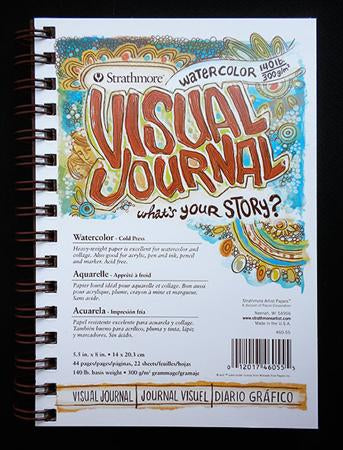 Strathmore
WATERCOLOR 140 lb
300 g/m²
VISUAL
JOURNAL
what's YOUR STORY?
Watercolor - Cold Press
Heavy-weight paper is excellent for watercolor and
collage. Also good for acrylic, pen and ink, pencil
and marker. Acid free.
Aquarelle - Apprêté à froid
Papier lourd idéal pour aquarelle et collage. Bon aussi
pour acrylique, plume, crayon à mine et marqueur.
Sans acide.
Acuarela - Impresión fría
Papel resistente excelente para acuarela y collage.
También bueno para acrílico, pluma y tinta, lápiz
y marcadores. Sin ácido.
5.5 in x 8 in. • 14 x 20.3 cm
44 pages/pages/páginas, 22 sheets/feuilles/hojas
140 lb. basis weight • 300 g/m² grammage/gramaje
Strathmore Artist Papers™
A division of Pacon Corporation
Neenah, WI 54956
www.strathmoreartist.com
Made in the U.S.A.
460-55
0 12017 46055 5
VISUAL JOURNAL | JOURNAL VISUEL | DIARIO GRÁFICO